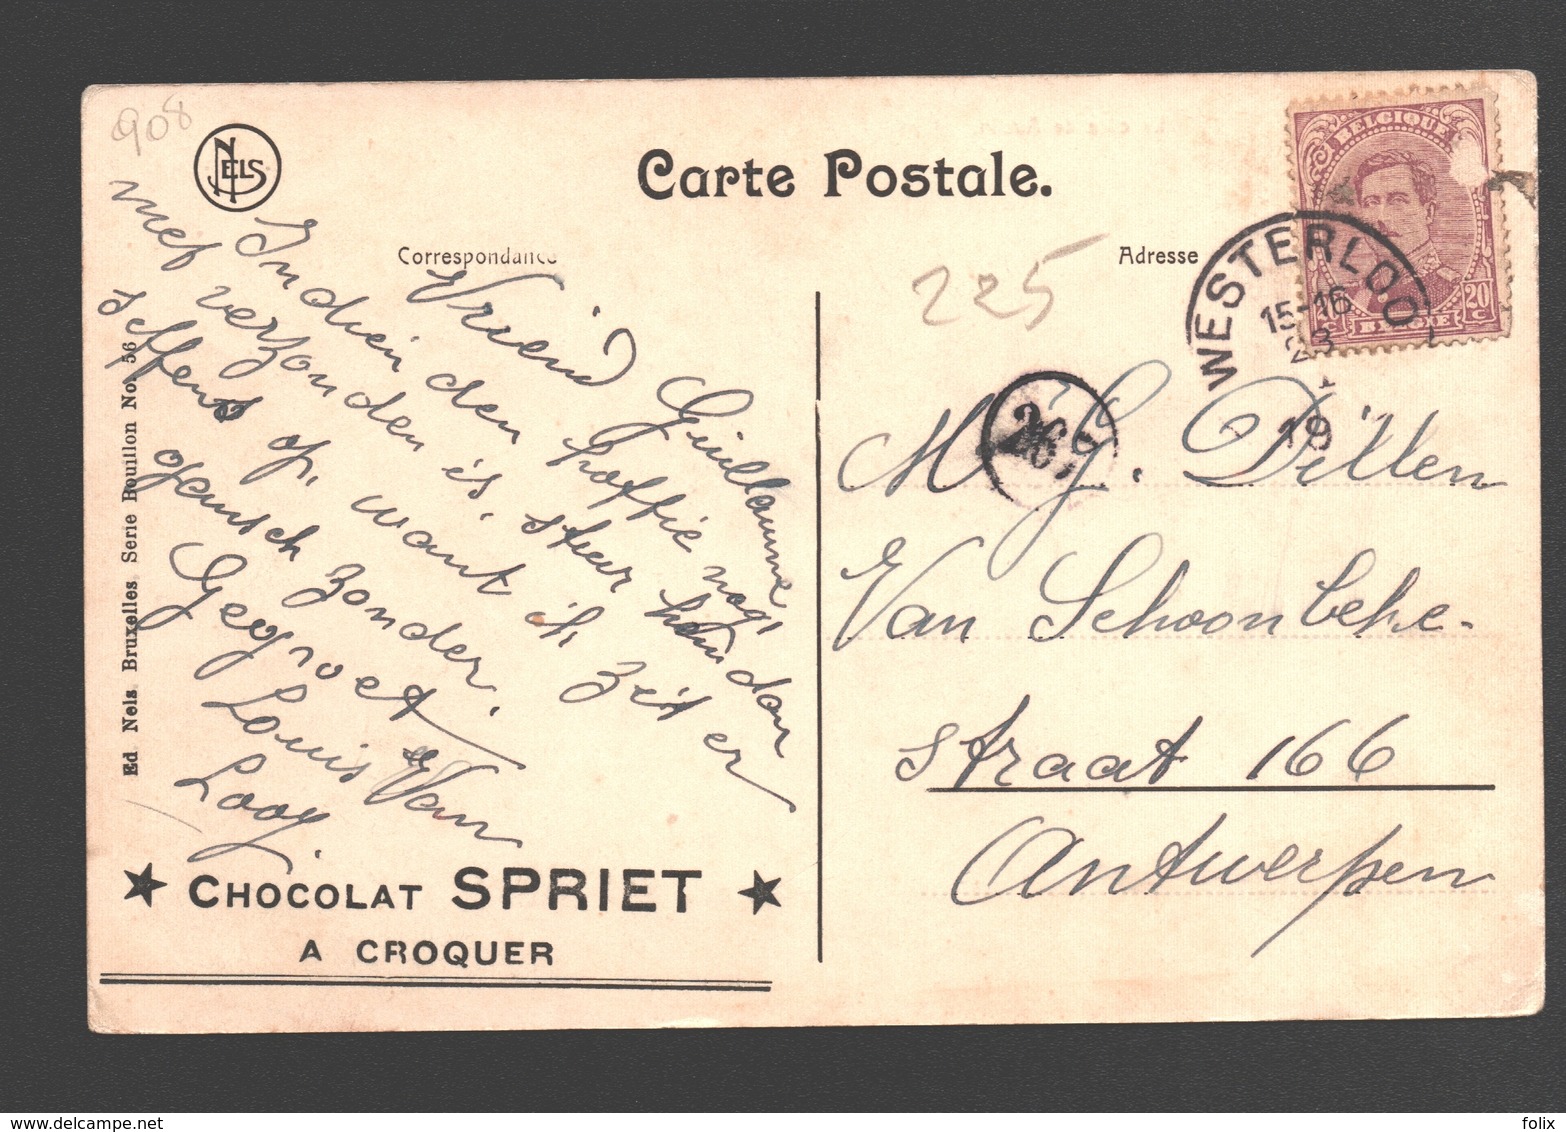 908
NELS
Carte Postale.
Correspondance
Adresse
225
BELGIQUE
20 c BELGIE 20 c
WESTERLOO
15-16
23
19
26
Vriend Guillaume,
Indien den koffie nog,
niet verzonden is, stuur hem dan
seffens op, want ik zit er
gansch zonder.
Gegroet
Louis Van
Looy.
M G. Dillen
Van Schoonbeke-
straat 166
Antwerpen
Ed Nels. Bruxelles Serie Bouillon No. 56
CHOCOLAT SPRIET
A CROQUER
folix